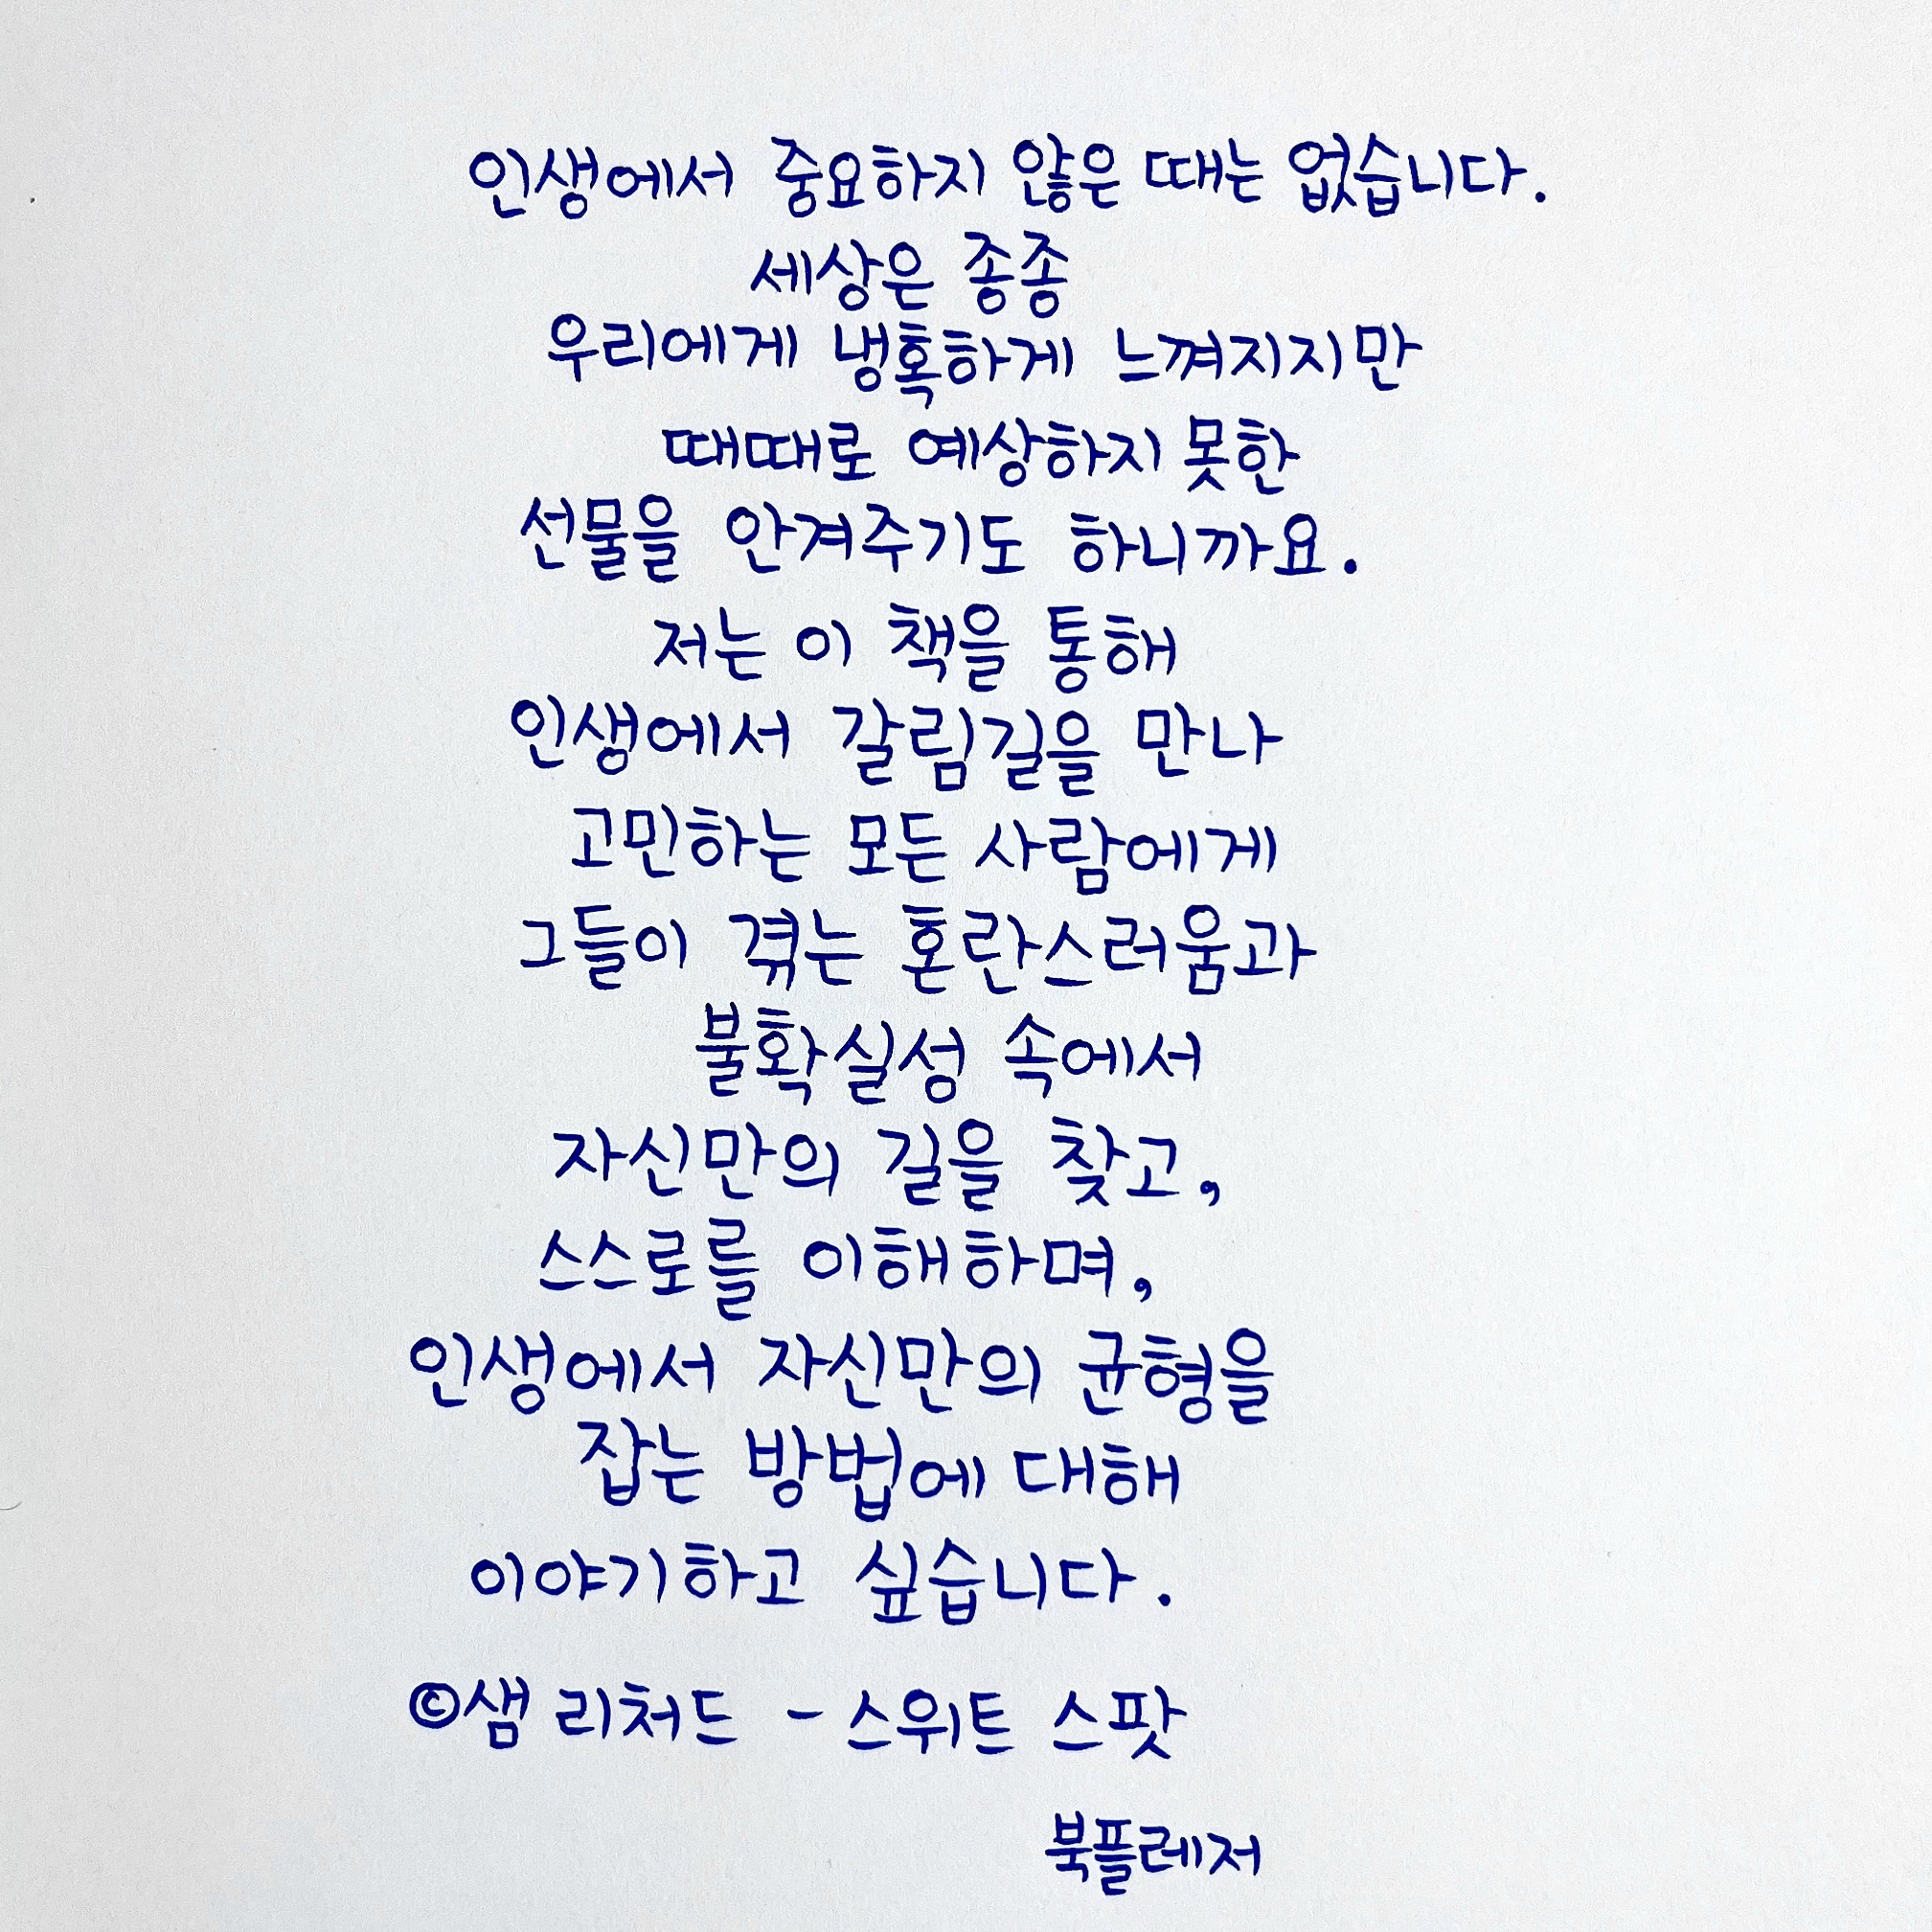 인생에서 중요하지 않은 때는 없습니다.
세상은 종종
우리에게 냉혹하게 느껴지지만
때때로 예상하지 못한
선물을 안겨주기도 하니까요.
저는 이 책을 통해
인생에서 갈림길을 만나
고민하는 모든 사람에게
그들이 겪는 혼란스러움과
불확실성 속에서
자신만의 길을 찾고,
스스로를 이해하며,
인생에서 자신만의 균형을
잡는 방법에 대해
이야기하고 싶습니다.
©샘 리처드 - 스위트 스팟
북플레저